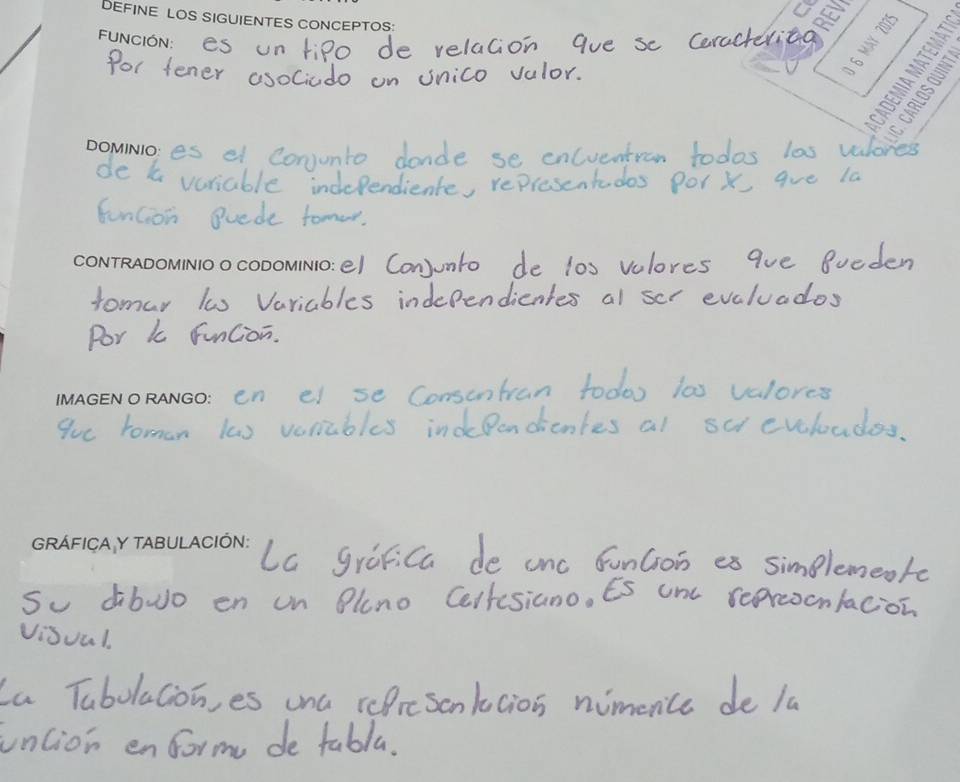 DEFINE LOS SIGUIENTES CONCEPTOS:
FUNCIÓN: es un tipo de relación que se caracteriza
Por tener asociado un único valor.
REVI
06 MAY 2025
ACADEMIA MATEMÁTICAS
LIC. CARLOS QUINTA
DOMINIO: es el conjunto donde se encuentran todos los valores
de la variable independiente, representados por x, que la
función puede tomar.
CONTRADOMINIO O CODOMINIO: el conjunto de los valores que pueden
tomar las variables independientes al ser evaluados
Por la función.
IMAGEN O RANGO: en el se consentran todos los valores
que toman las variables independientes al ser evaluados.
GRÁFICA Y TABULACIÓN: La gráfica de una función es simplemente
su dibujo en un plano cartesiano. Es una representación
visual.
La Tabulación, es una representación númerica de la
función en forma de tabla.